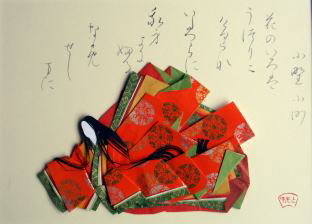 小野小町
花のいろは
うつりに
けりな
いたつらに
我身
なかめ
せし
まに